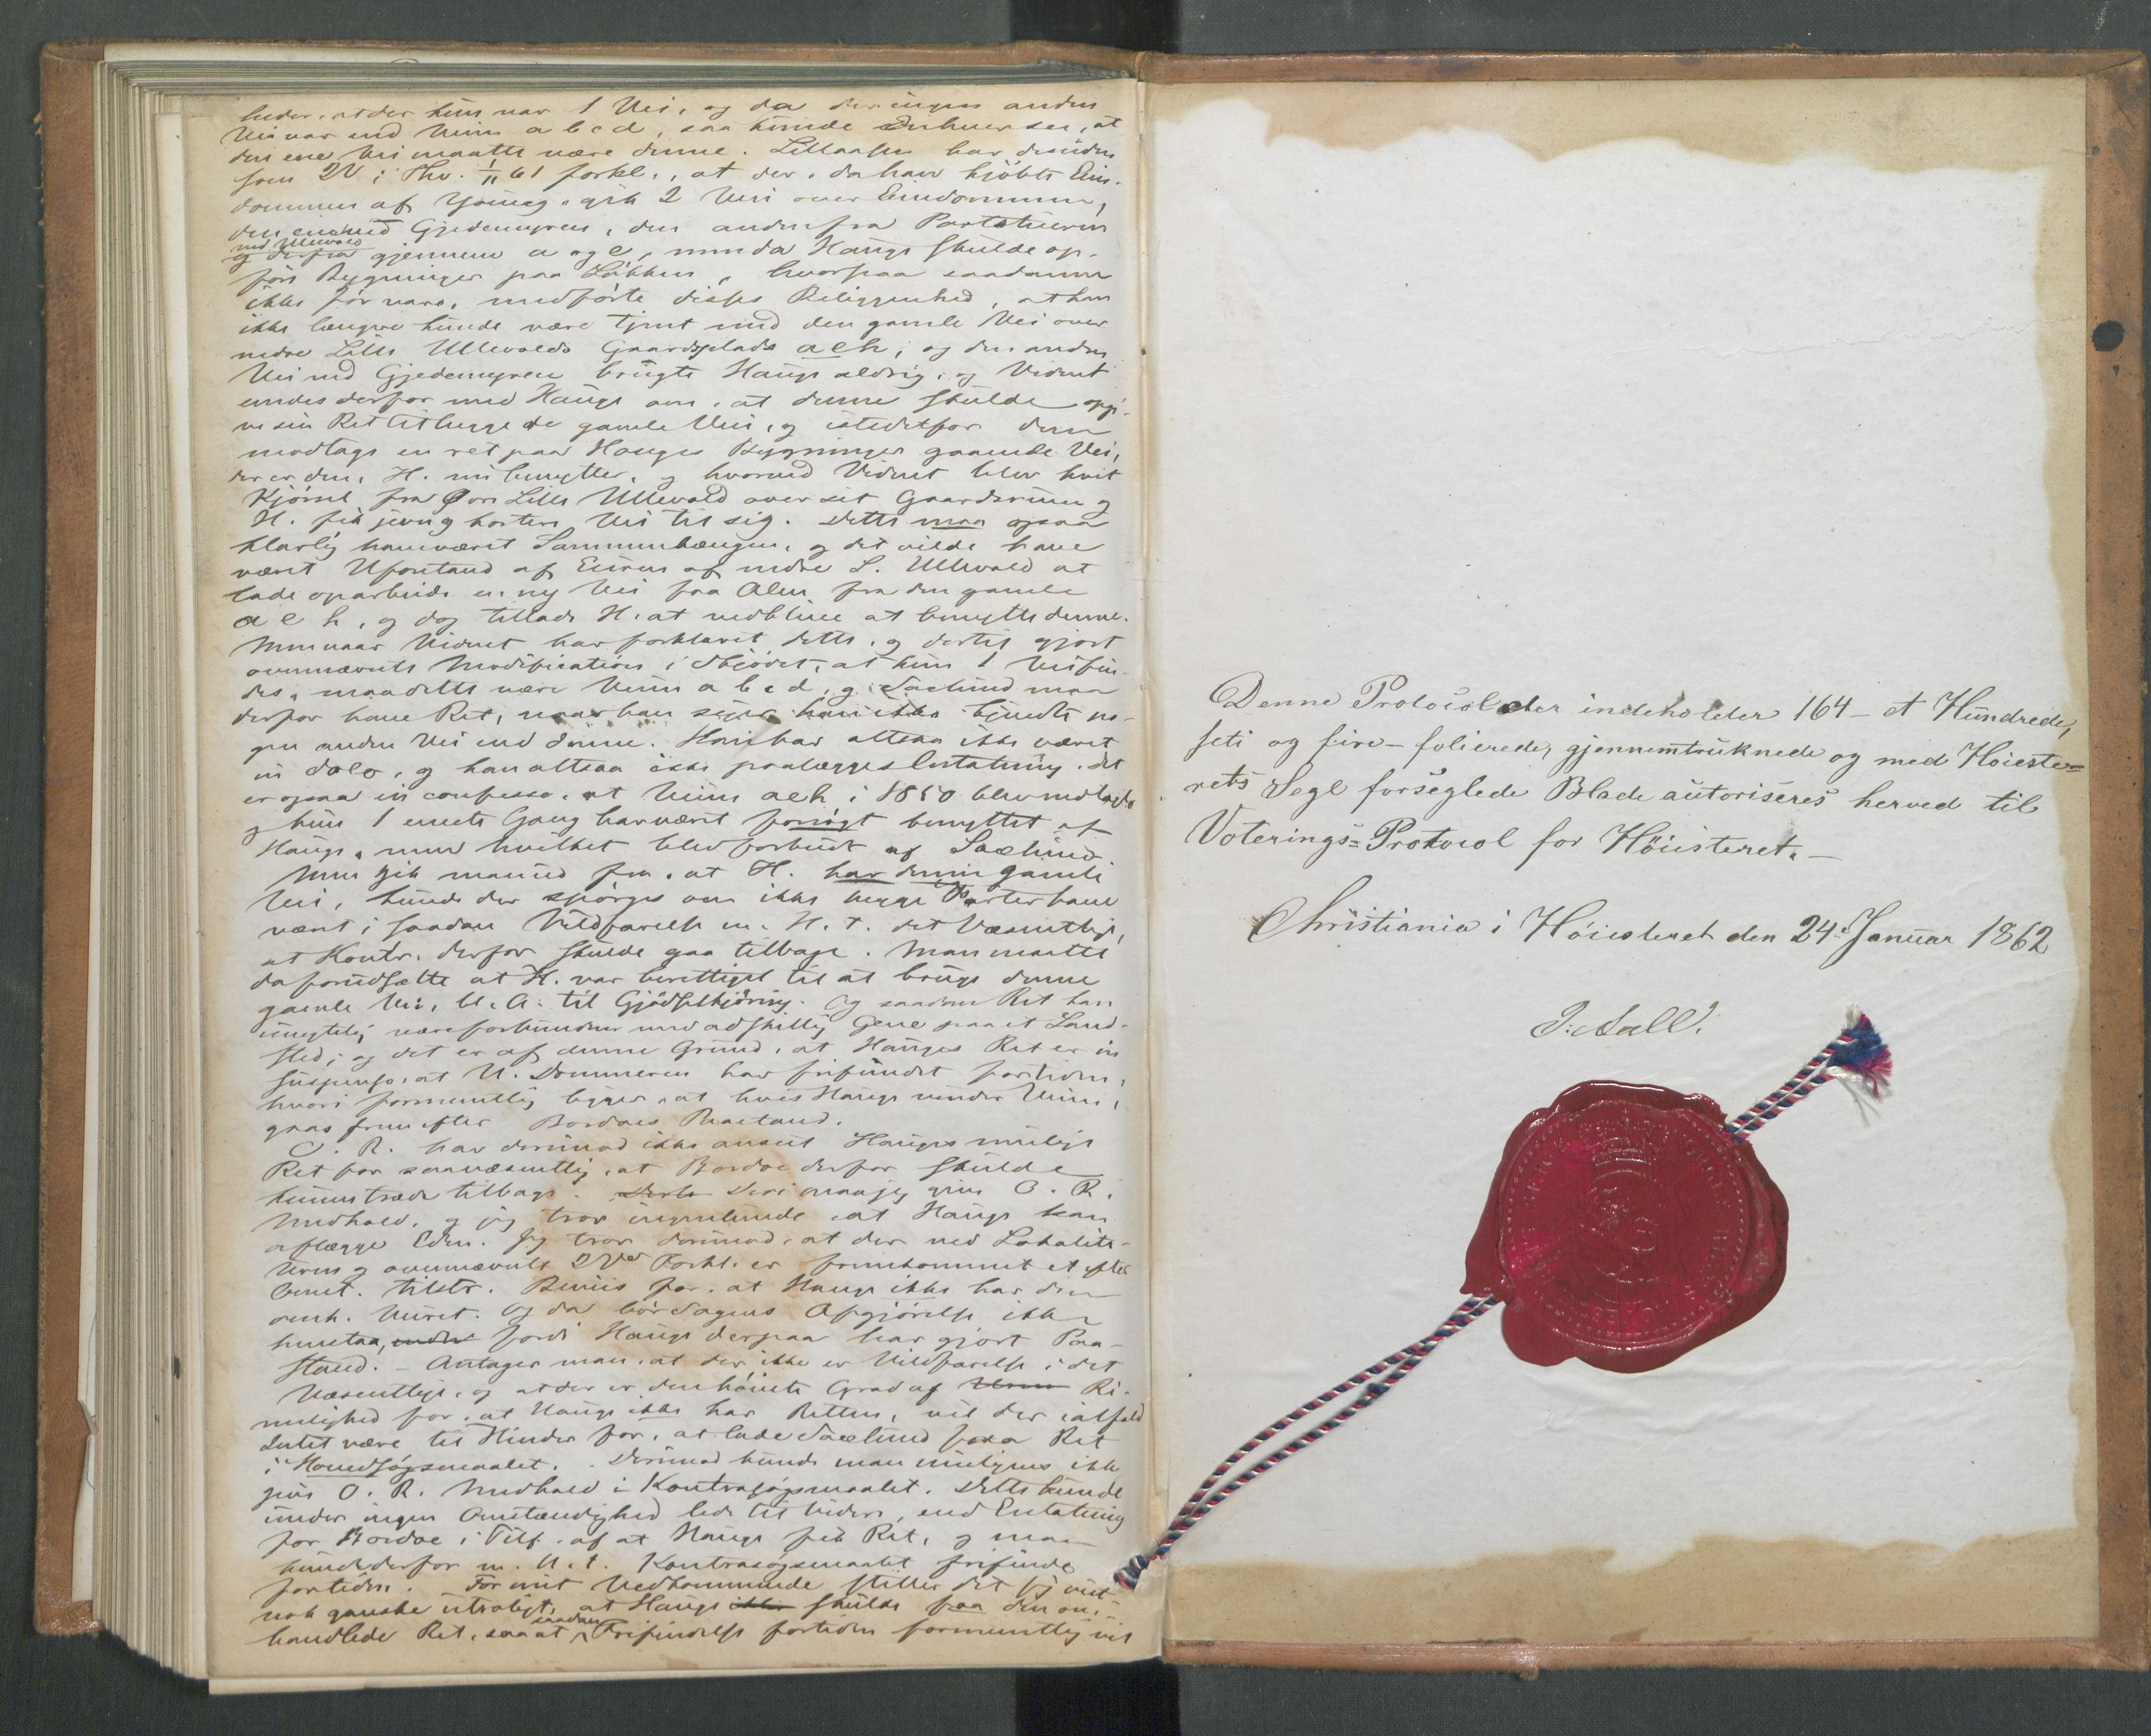 heder, at der kun var 1 Vei, og da der ingen anden
Vei var end Veien a b c d, saa kunde Enhver see, at
den ene Vei maatte være denne. Lillaasen har desuden
som 2V i Thv. 1/11 61 forkl., at der, da han kjøbte Eien-
dommen af Young, gik 2 Veie over Eiendommen,
den ene ved Gjedemyren, den anden fra Portstuen
ved Ullevold
og derfra gjennem a og e, men da Hauge skulde op-
føre Bygninger paa Løkken, hvorpaa saadanne
ikke før vare, medførte disses Beliggenhed, at han
ikke længere kunde være tjent med den gamle Vei over
nedre Lille Ullevolds Gaardsplads aeh, og den anden
Vei ved Gjedemyren brugte Hauge aldrig, og Vidnet
enedes derfor med Hauge om, at denne skulde opgi-
ve sin Ret til begge de gamle Veie, og istedetfor dem
modtage en ret paa Hauges Bygninger gaaende Vei,
der er den, H. nu benytter, og hvorved Vidnet blev kvit
Kjørsel fra Øvre Lille Ullevold over sit Gaardsrum og
H. fik jevn og kortere Vei til sig. Dette maa ogsaa
klarlig have været Sammenhængen, og det vilde have
været Uforstand af Eieren af nedre L. Ullevold at
lade oparbeide en ny Vei faa Alen fra den gamle
a e h, og dog tillade H. at vedblive at benytte denne.
Men naar Vidnet har forklaret dette, og dertil gjort
ovennævnte Modification i Skjødet, at kun 1 Vei fin-
des, maa dette være Veien a b c d, og Saelund maa
derfor have Ret, naar han siger han ikke kjendte no-
gen anden Vei end denne. Han har altsaa ikke været
in dolo, og kan altsaa ikke paalægges Erstatning. Det
er ogsaa in confesso, at Veien aeh i 1850 blev nedlagt
og kun 1 eneste Gang har været forsøgt benyttet af
Hauge, men hvilket blev forbudt af Saelund.
Men gik man ud fra, at H. har denne gamle
Vei, kunde der spørges om ikke begge Parter have
været i saadan Vildfarelse m. H. t. det Væsentlige,
at Kontr. derfor skulde gaa tilbage. Man maatte
da forudsætte at H. var berettiget til at bruge denne
gamle Vei, bl. A. til Gjødselkjøring. Og saadan Ret kan
unægtelig være forbunden med adskillig Gene paa et Land-
sted; og det er af denne Grund, at Hauges Ret er in
suspenso, at U. Dommeren har frifundet fortiden,
hvori formentlig ligger, at hvis Hauge vinder Veien,
gaaes frem efter Bordoes Paastand.
O. R. har derimod ikke anseet Hauges mulige
Ret for saa væsentlig, at Bordoe derfor skulde
kunne træde tilbage. Deri maa jeg give O. R.
Medhold, og jeg tror ingenlunde, at Hauge kan
aflægge Eden. Jeg tror derimod, at der ved Lokalite-
teren og ovennævnte 2V's Forkl. er fremkommet et efter
Omst. tilstr. Beviis for, at Hauge ikke har den
omh. Veiret. Og da bør Sagens Afgjørelse ikke
henstaa, fordi Hauge derpaa har gjort Paa-
stand. – Antager man, at der ikke er Vildfarelse i det
Væsentlige, og at der er den høieste Grad af Ri-
melighed for, at Hauge ikke har Retten, vil der ialfald
Intet være til Hinder for, at lade Saelund faa Ret
i Hovedsøgsmaalet. – Derimod kunde man muligens ikke
give O. R. Medhold i Kontrasøgsmaalet. Dette kunde
under ingen Omstændighed lede til Videre, end Erstatning
for Bordoe i Tilf. af at Hauge fik Ret, og man
kunde derfor m. H. t. Kontrasøgsmaalet frifinde
fortiden. For mit Vedkommende stiller det sig vist-
nok ganske utroligt, at Hauge skulde faa den om-
handlede Ret, saa at saadan Frifindelse fortiden formentlig vil
Denne Protocol der indeholder 164 – et Hundrede,
seti og fire – folierede, gjennemtrukne og med Høieste-
rets Segl forseglede Blade autoriseres herved til
Voterings-Protocol for Høiesteret. –
Christiania i Høiesteret den 24. Januar 1862
J: Aall.